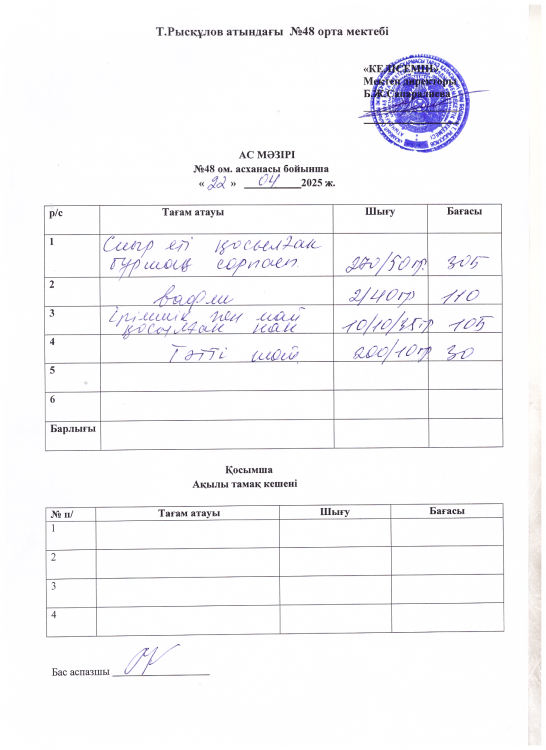 Т.Рысқұлов атындағы №48 орта мектебі
«КЕЛІСЕМІН»
Мектеп директоры
Б.Ж.Сапаралиева
АС МӘЗІРІ
№48 ом. асханасы бойынша
« 22 » 04 2025 ж.
р/с Тағам атауы Шығу Бағасы
1 Сиыр еті қосылған
бұршақ сорпасы 250/50гр. 305
2 вафли 2/40гр 110
3 Ірімшік пен май
қосылған нан 10/10/35гр 105
4 Тәтті шай 200/10гр 30
5
6
Барлығы
Қосымша
Ақылы тамақ кешені
№ п/ Тағам атауы Шығу Бағасы
1
2
3
4
Бас аспазшы